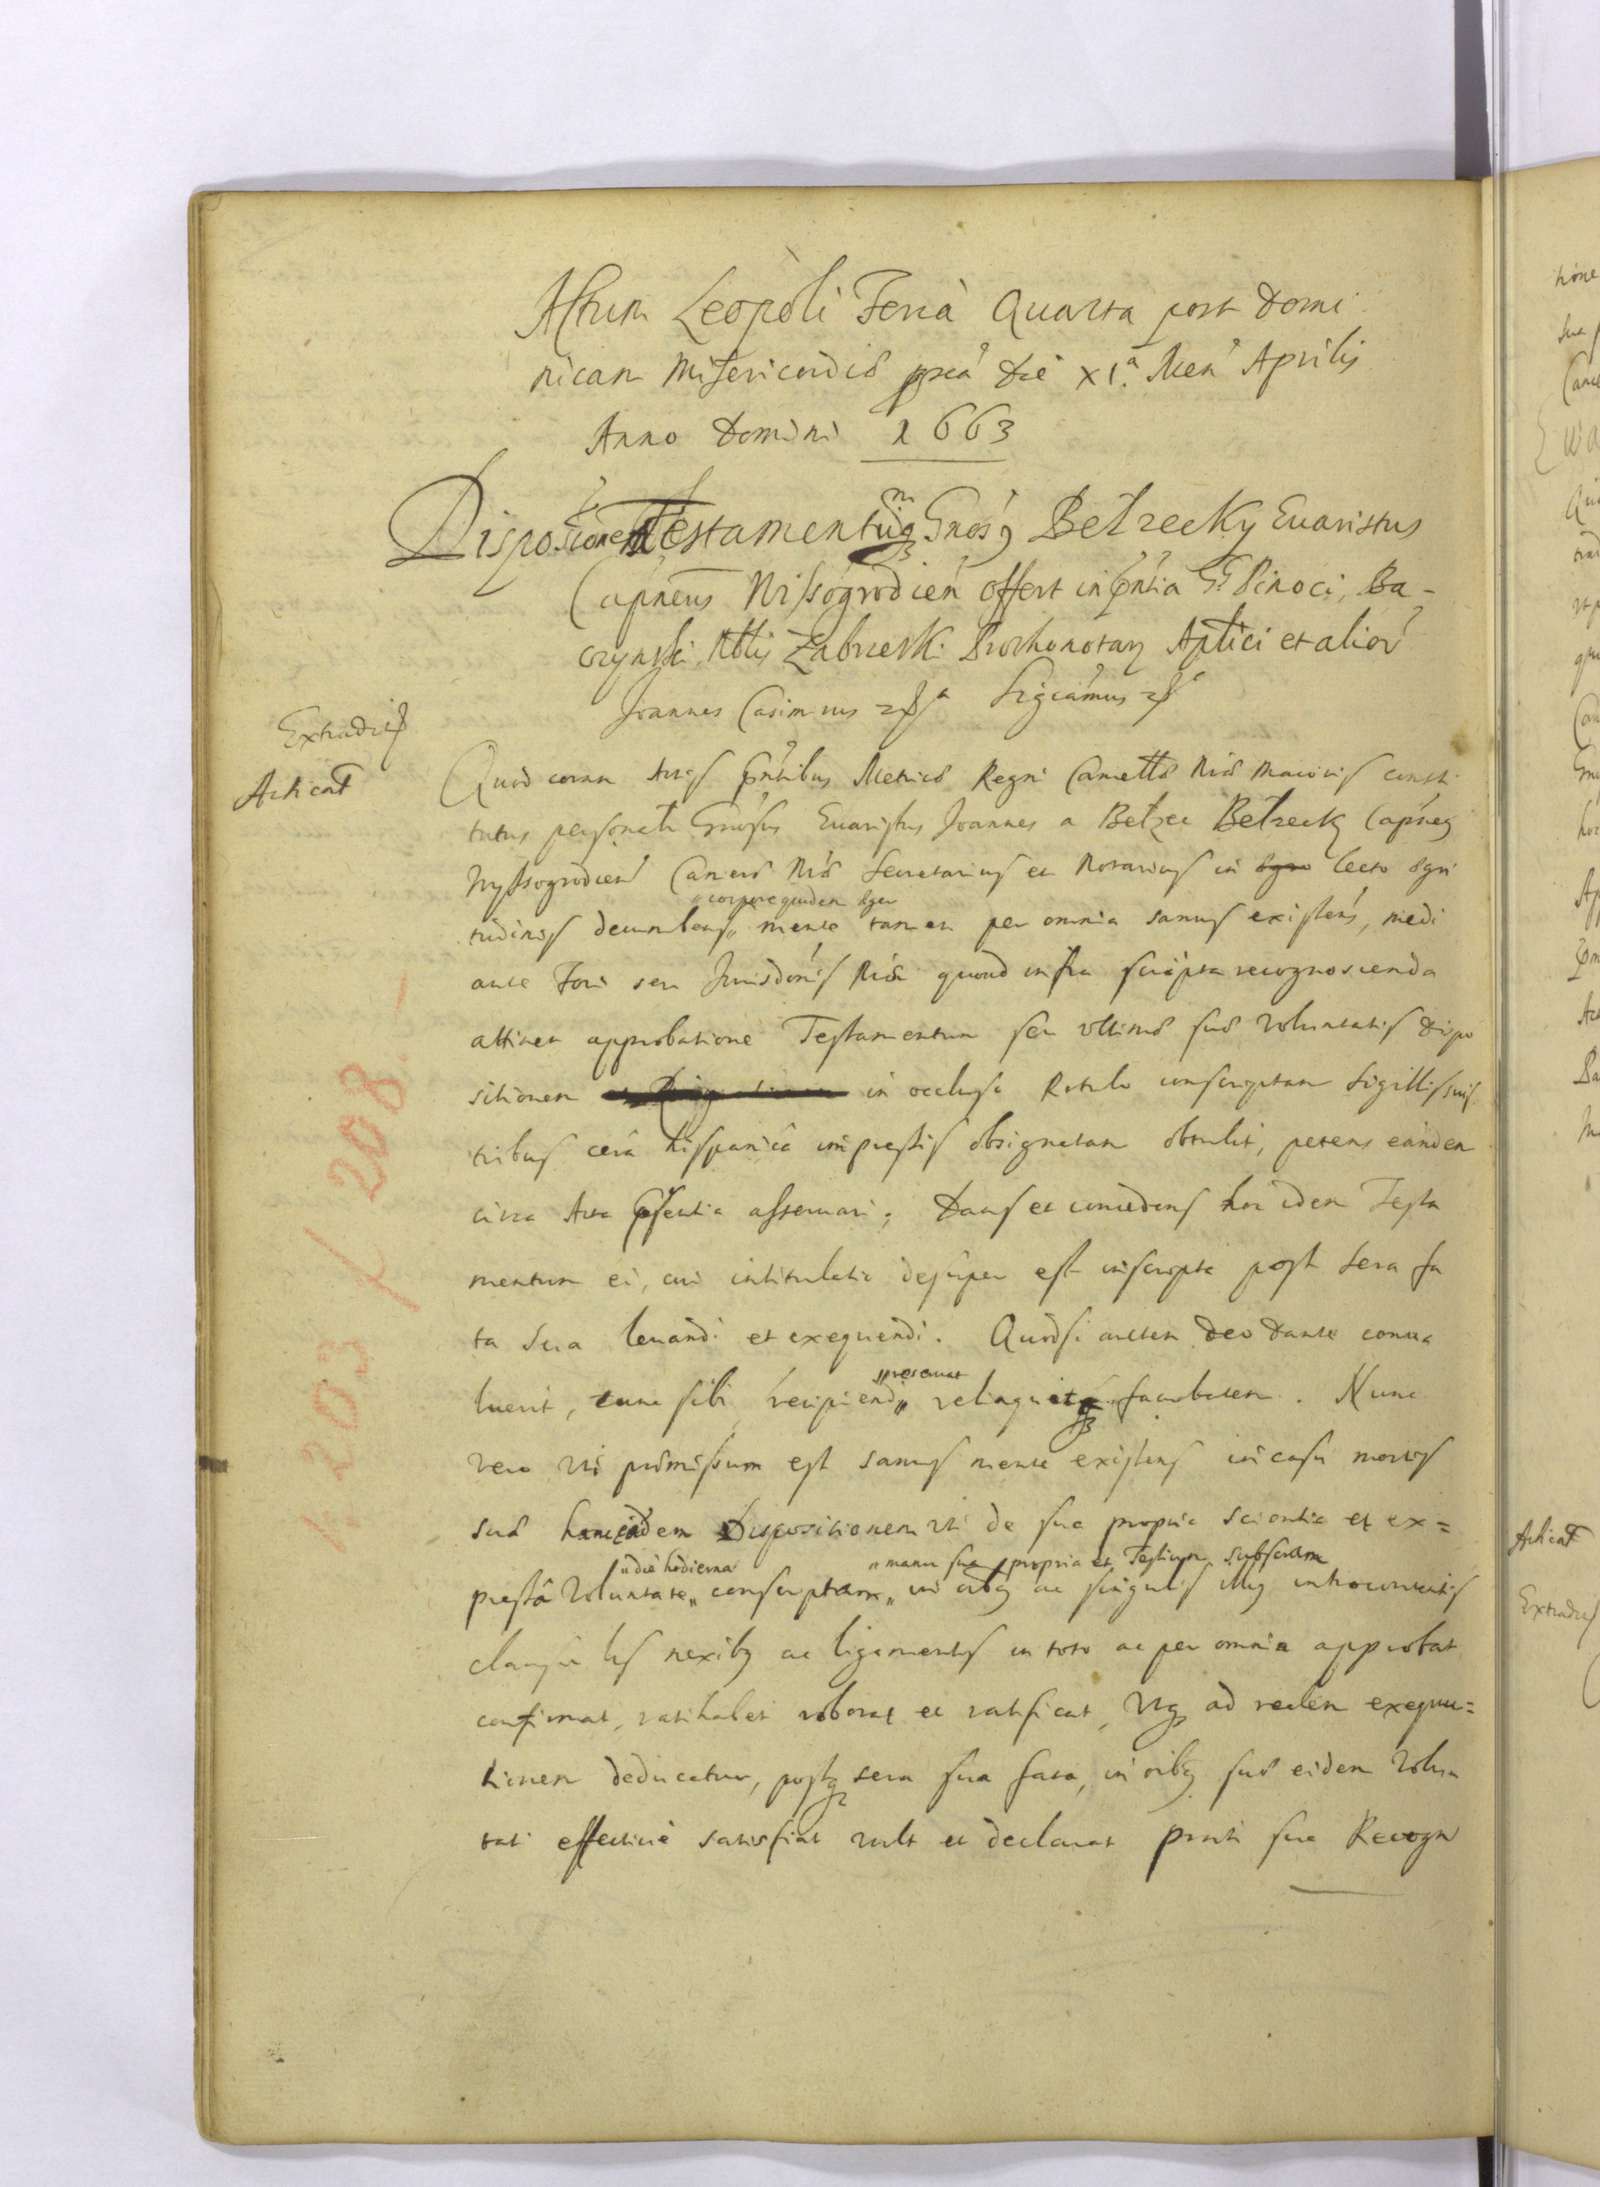 Actum Leopoli Feria Quarta post Domi
nicam Misericordiæ pxa die XI.a Men Aprilis
Anno Domini 1663
Dispositionem Testamentumq Gnosq Bełzecky Evaristus
Capneus Wissogrodien offert in pntia Gr Pinoci, Ba-
czynski Nblis Zabrzeski Prothonotary Aplici et alior
Joannes Casimirus etca Significamus etc
Extradit
Acticat
Quod coram Actis pntibus Metricæ Regni Cancella Næ Maioris consti
tutus personalr Gnosus Evaristus Joannes a Bełzec Bełzecky Capneq
Wyssogrodien Cancell Næ Secretarius et Notarius in ægro lecto ægri
corpore quidem æger
tudinis decumbens, mente tamen per omnia sanus existens, medi
ante Fori seu Jurisdonis Næ quoad infra scripta recognoscenda
attinet approbatione Testamentum seu ultimæ suæ voluntatis dispo
sitionem in occluso Rotulo conscriptam Sigillis suis
tribus cera hispanica impressis obsignatam obtulit, petens eandem
circa Acta præsentia asservari; Dans et concedens hoc idem Testa
mentum ei, cui intitulatio desuper est inscripta post sera fa
ta sua levandi et exequendi. Quodsi autem Deo dante conva
reservat
luerit, tunc sibi recipiendi, relinquitq facultatem. Nunc
vero uti præmissum est sanus mente existens in casu mortis
suæ hanc eandem Dispositionem uti de sua propria scientia et ex=
die hodierna manu sua propria et Testium subscriptam
pressa voluntate, conscriptam, in oibq ac singulis illiq introcontentis
clausulis nexibq ac ligamentis in toto ac per omnia approbat
confirmat, ratihabet roborat et ratificat, Utq ad realem exequu=
tionem deducatur, postq sera sua fata, in oibq suæ eidem volun
tati effective satisfiat vult et declarat pnti sua Recogn
f 203 / 208. -